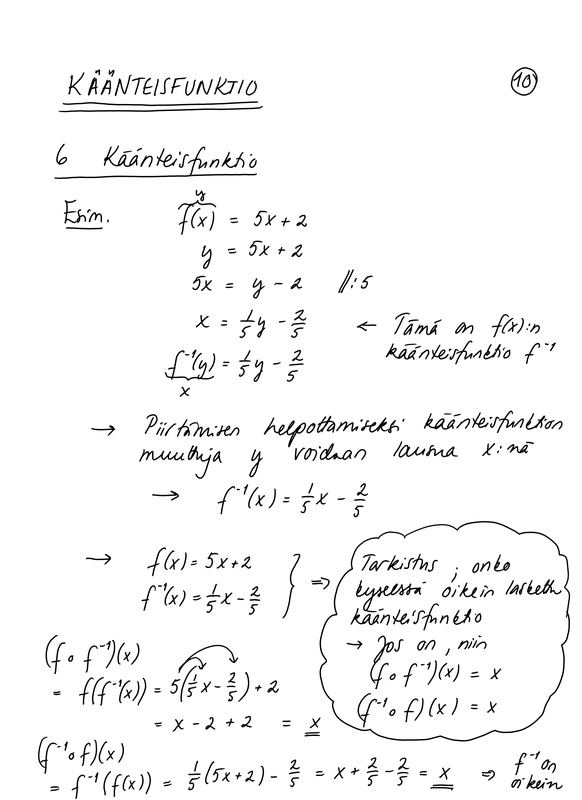 KÄÄNTEISFUNKTIO
10
6 Käänteisfunktio
Esim.
y
f(x) = 5x + 2
y = 5x + 2
5x = y - 2 //:5
x = 1/5 y - 2/5 ← Tämä on f(x):n
käänteisfunktio f⁻¹
f⁻¹(y) = 1/5 y - 2/5
x
→ Piirtämisen helpottamiseksi käänteisfunktion
muuttuja y voidaan lausua x:nä
→ f⁻¹(x) = 1/5 x - 2/5
→ f(x) = 5x + 2
f⁻¹(x) = 1/5 x - 2/5 } ⇒
Tarkistus, onko
kyseessä oikein laskettu
käänteisfunktio
→ Jos on, niin
(f ∘ f⁻¹)(x) = x
(f⁻¹ ∘ f)(x) = x
(f ∘ f⁻¹)(x)
= f(f⁻¹(x)) = 5(1/5 x - 2/5) + 2
= x - 2 + 2 = x
(f⁻¹ ∘ f)(x)
= f⁻¹(f(x)) = 1/5 (5x + 2) - 2/5 = x + 2/5 - 2/5 = x ⇒ f⁻¹ on
oikein